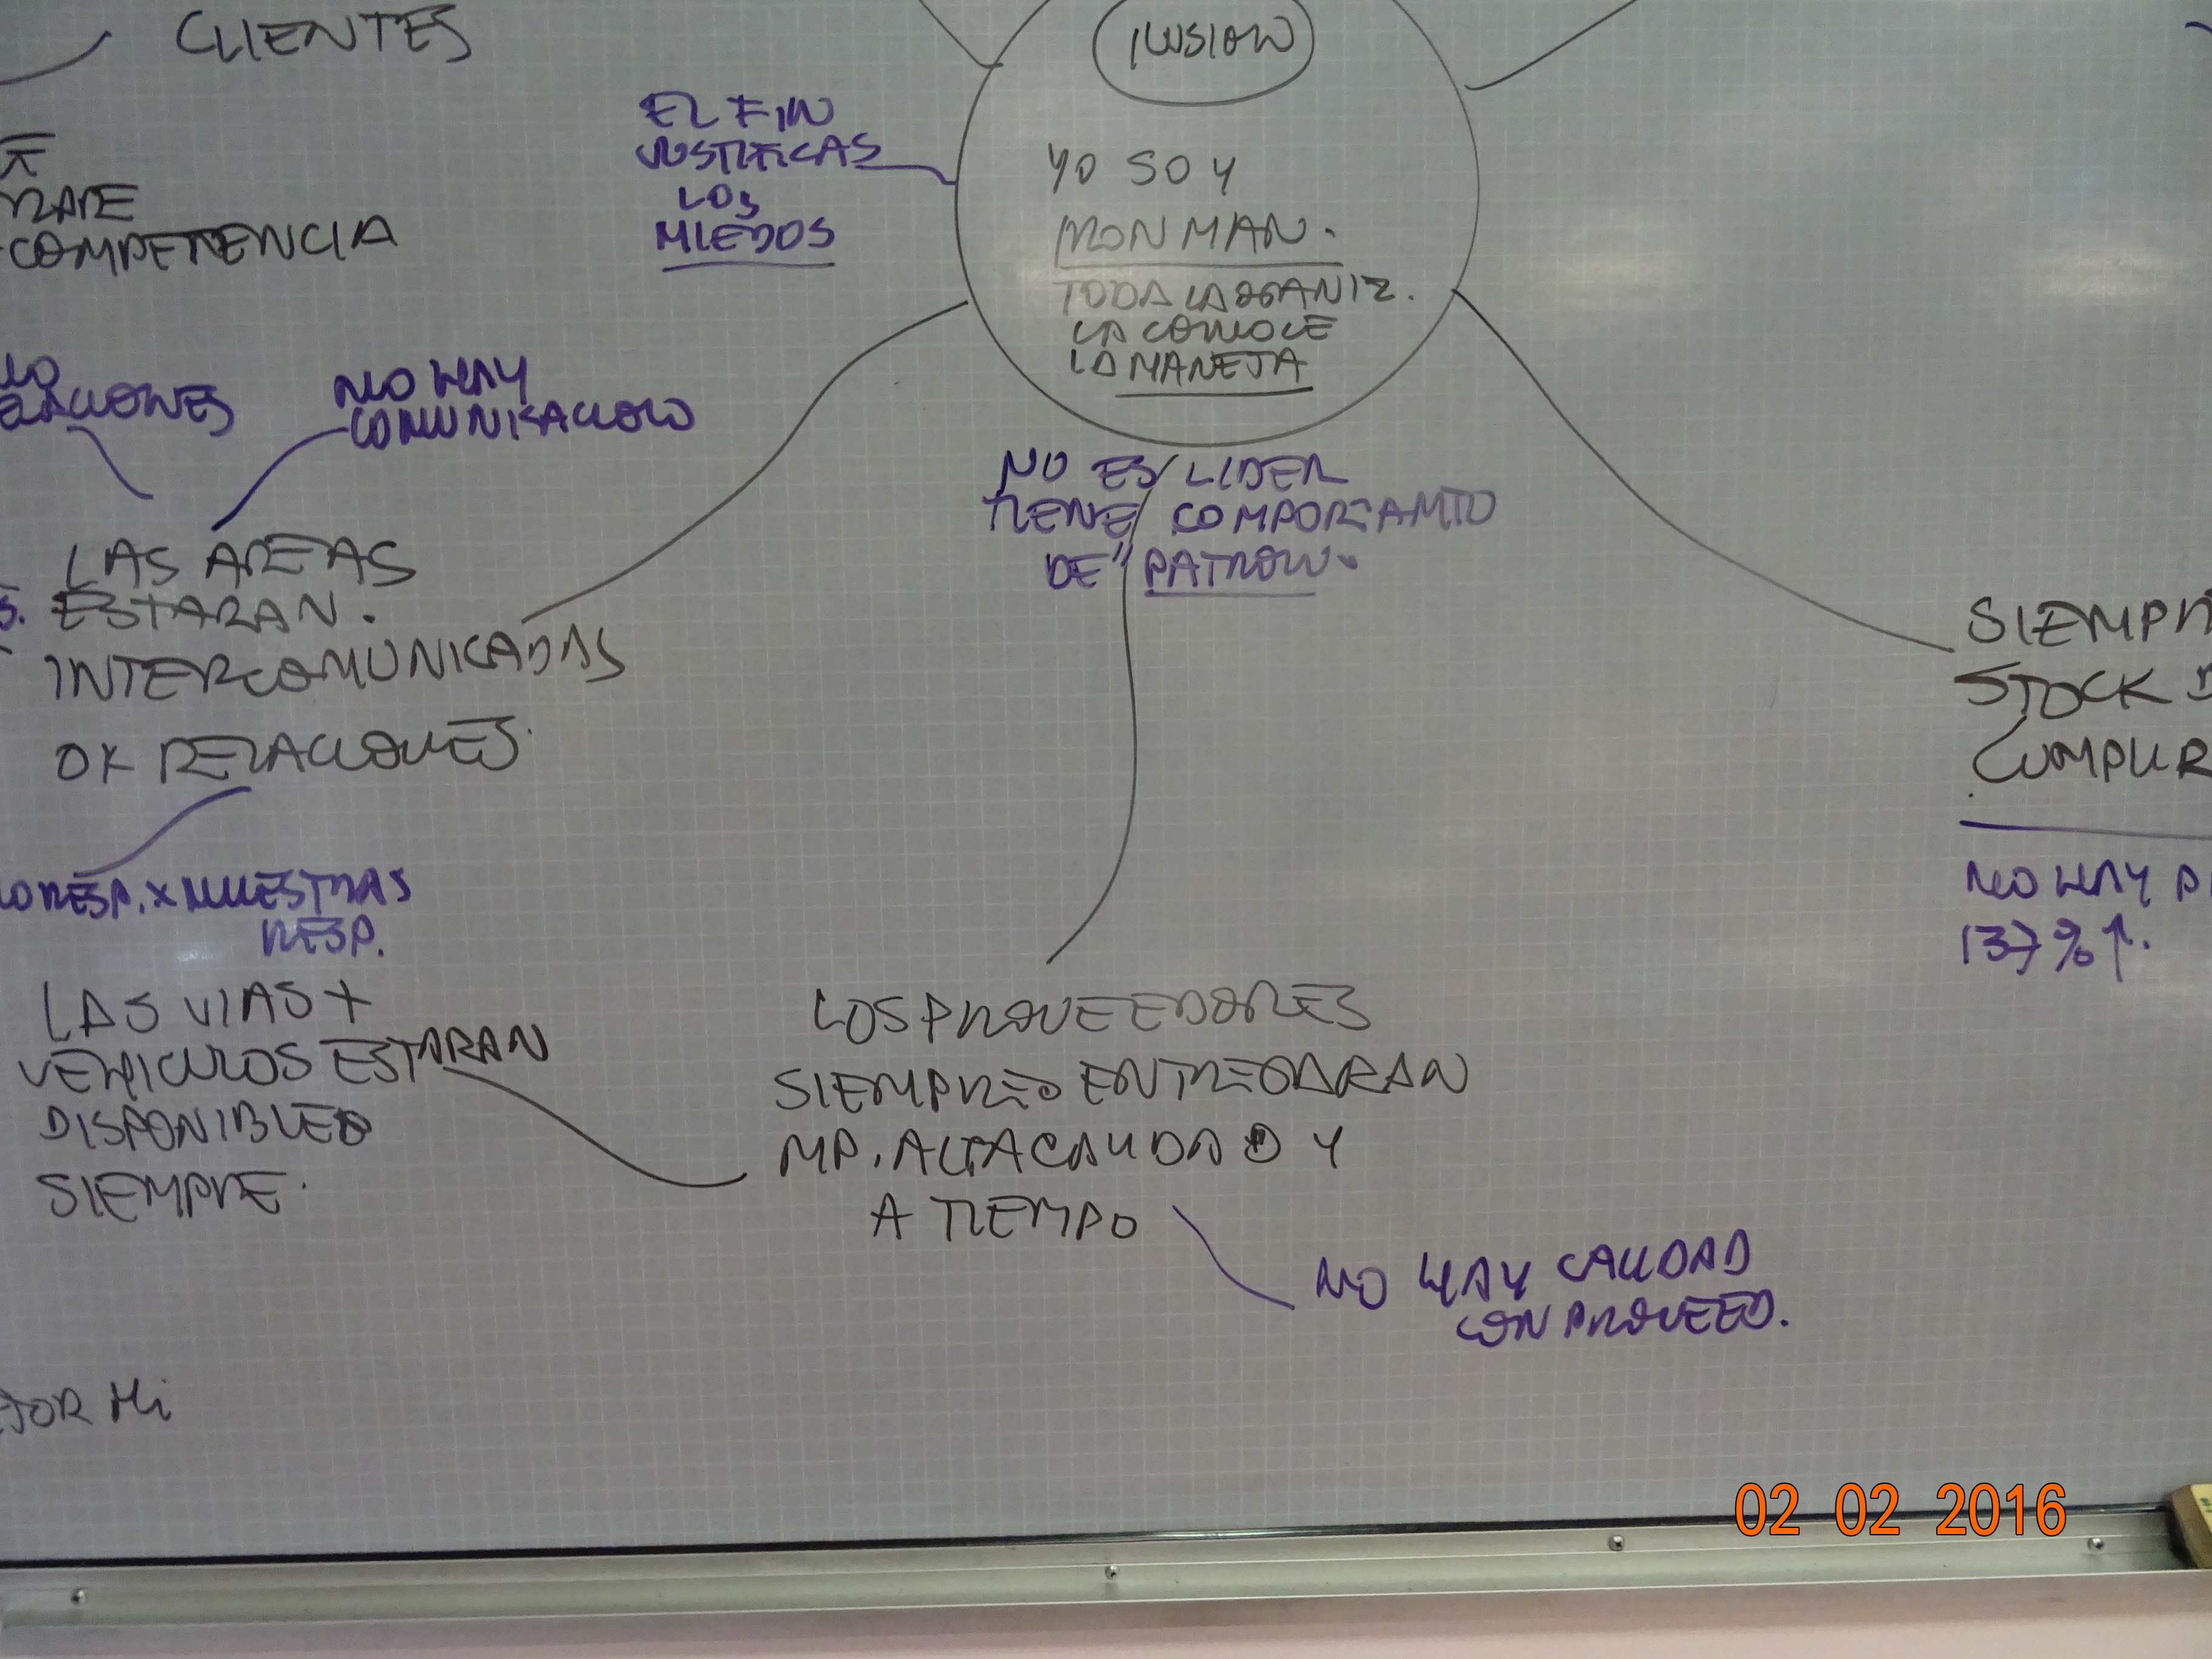 CLIENTES
ILUSION
EL FIN
JUSTIFICAS
LOS
MIEDOS
YO SOY
IRON MAN.
TODA LA ORGANIZ.
LA CONOCE
LA MANEJA
COMPETENCIA
NO HAY
COMUNISACION
NO ES LIDER
TIENE COMPORTAMTO
DE "PATRON"
LAS AREAS
ESTARAN.
INTERCOMUNICADAS
OK RELACIONES.
SIEMPR
STOCK D
CUMPLIR
NO RESP. X NUESTRAS
RESP.
NO HAY P
137% ↑.
LAS VIAS +
VEHICULOS ESTARAN
DISPONIBLES
SIEMPRE.
LOS PROVEEDORES
SIEMPRES ENTREGARAN
MP. ALTA CALIDAD Y
A TIEMPO
NO HAY CALIDAD
CON PROVEED.
JOR Mi
02 02 2016